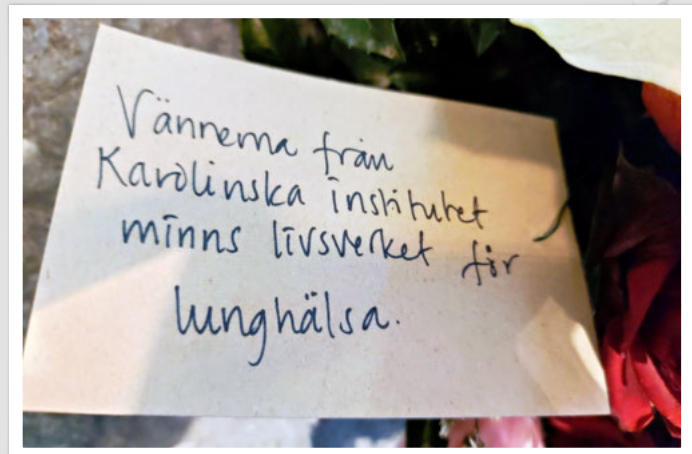 Vännerna från
Karolinska institutet
minns livsverket för
lunghälsa.